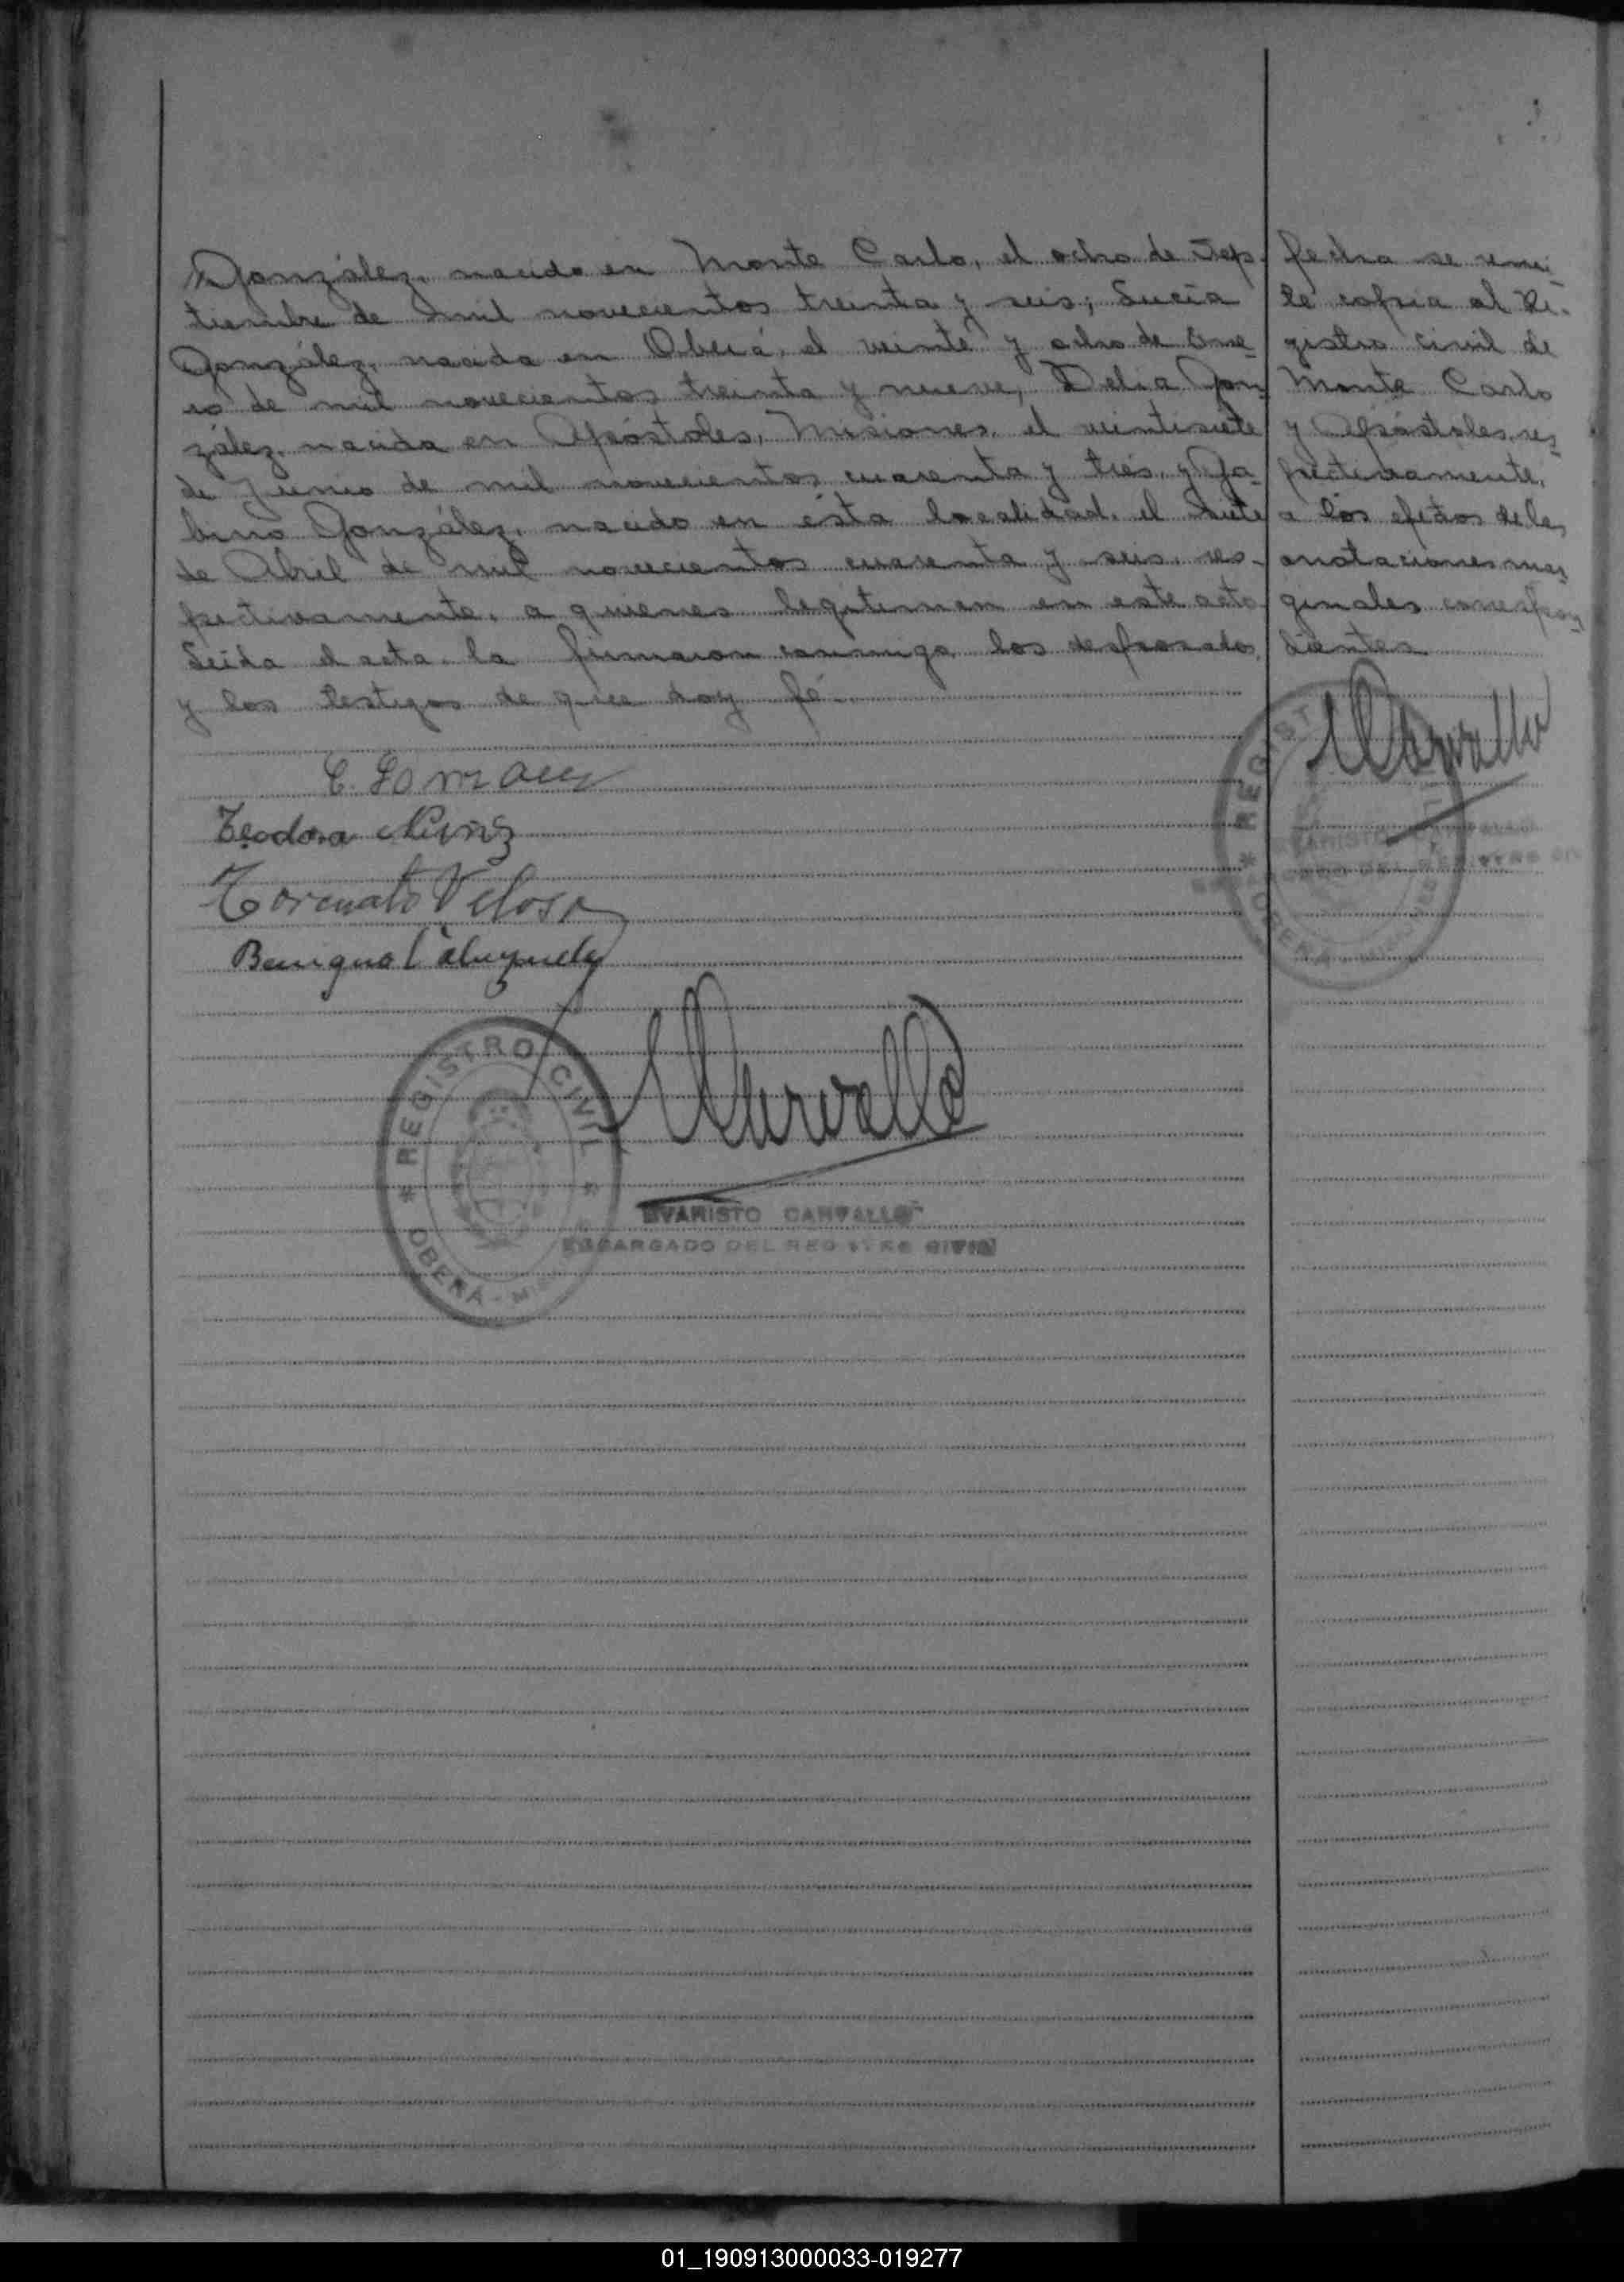 González, nacido en Monte Carlo, el ocho de Sep-
tiembre de mil novecientos treinta y seis; Lucía
González, nacida en Oberá, el veinte y ocho de Ene-
ro de mil novecientos treinta y nueve, Delia Gon-
zález, nacida en Apóstoles, Misiones, el veintisiete
de Junio de mil novecientos cuarenta y trés, y Ga-
bino González, nacido en ésta localidad, el siete
de Abril de mil novecientos cuarenta y seis, res-
pectivamente, a quienes legitiman en este acto.
Leída el acta la firmaron conmigo los desposados
y los testigos de que doy fé.
Teodora
Torcuato Veloso
Benigno
Carvallo
REGISTRO CIVIL
OBERA
EVARISTO CARVALLO
ENCARGADO DEL REGISTRO CIVIL
fecha se remi-
te copia al Re-
gistro civil de
Monte Carlo
y Apóstoles, res-
pectivamente,
a los efectos de las
anotaciones mar-
ginales correspon-
dientes
Carvallo
REGISTRO
OBERA
EVARISTO CARVALLO
ENCARGADO DEL REGISTRO
01_190913000033-019277